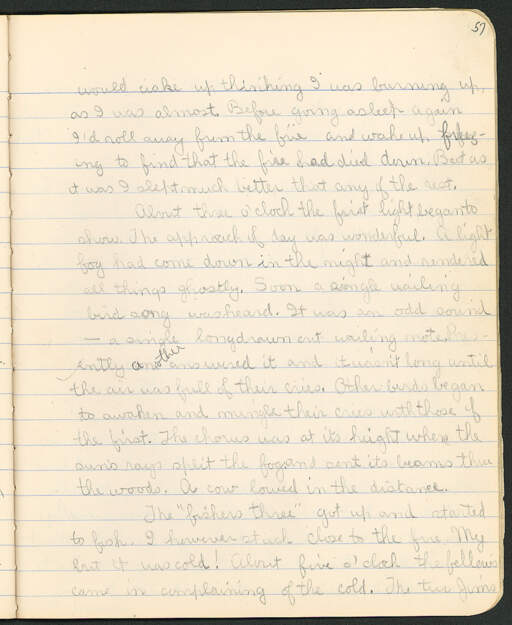 57
would wake up thinking I was burning up,
as I was almost. Before going asleep again
I'd roll away from the fire and wake up freez-
ing to find that the fire had died down. But as
it was I slept much better that any of the rest.
About three o'clock the first light began to
show. The approach of day was wonderful. A light
fog had come down in the night and rendered
all things ghostly. Soon a single wailing
bird song was heard. It was an odd sound
— a single long drawn out wailing note. Pres-
ently another answered it and it wasn't long until
the air was full of their cries. Other birds began
to awaken and mingle their cries with those of
the first. The chorus was at its height when the
sun's rays split the fog and sent its beams thru
the woods. A cow lowed in the distance.
The "fishers three" got up and started
to fish. I however stuck close to the fire. My
but it was cold! About five o'clock the fellows
came in complaining of the cold. The two Jims